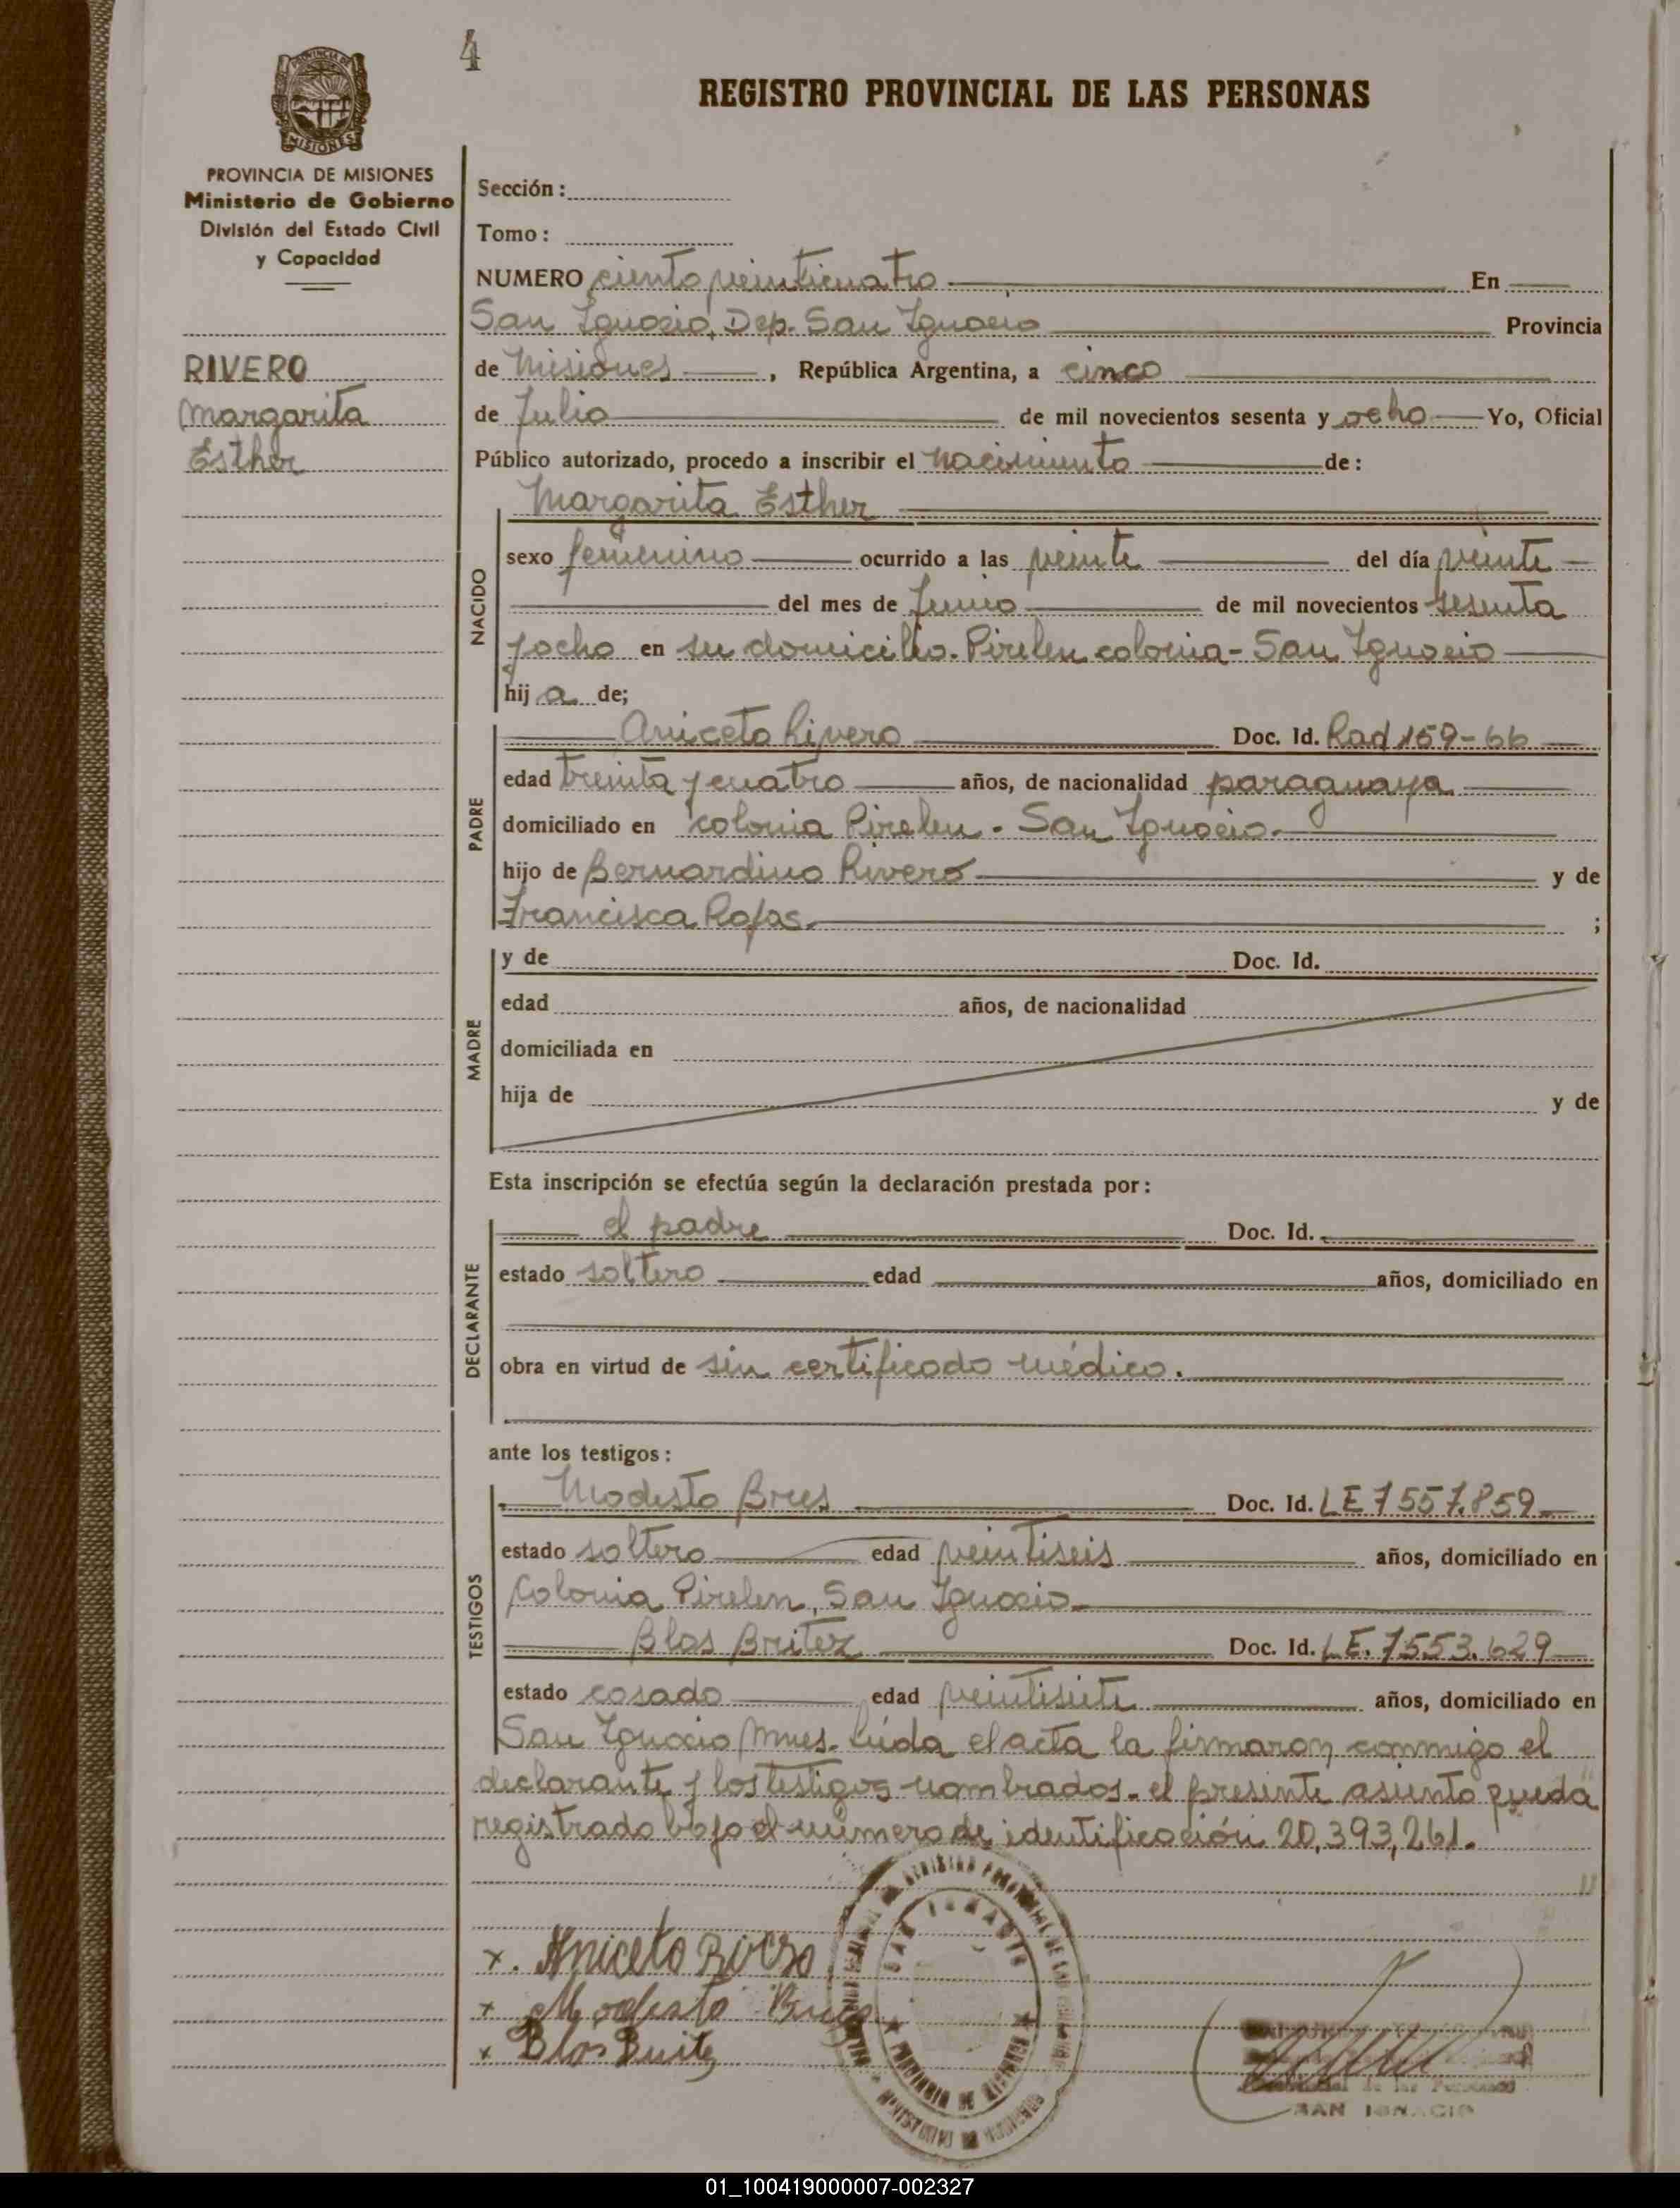 4
REGISTRO PROVINCIAL DE LAS PERSONAS
PROVINCIA DE
MISIONES
PROVINCIA DE MISIONES
Ministerio de Gobierno
División del Estado Civil
y Capacidad
RIVERO
Margarita
Esther
Sección:
Tomo:
NUMERO ciento veinticuatro En
San Ignacio, Dep. San Ignacio Provincia
de Misiones, República Argentina, a cinco
de Julio de mil novecientos sesenta y ocho Yo, Oficial
Público autorizado, procedo a inscribir el nacimiento de:
Margarita Esther
NACIDO
sexo femenino ocurrido a las veinte del día veinte
del mes de Junio de mil novecientos sesenta
y ocho en su domicilio. Pirelen colonia - San Ignacio
hij a de;
PADRE
Aniceto Rivero Doc. Id. Rad 169-66
edad treinta y cuatro años, de nacionalidad paraguaya
domiciliado en colonia Pirelen - San Ignacio.
hijo de Bernardino Rivero y de
Francisca Rojas. ;
MADRE
y de Doc. Id.
edad años, de nacionalidad
domiciliada en
hija de y de
Esta inscripción se efectúa según la declaración prestada por:
DECLARANTE
el padre Doc. Id.
estado soltero edad años, domiciliado en
obra en virtud de sin certificado médico.
ante los testigos:
TESTIGOS
Modesto Bres Doc. Id. LE 7557.859
estado soltero edad veintiseis años, domiciliado en
Colonia Pirelen, San Ignacio
Blas Britez Doc. Id. L.E. 7553.629
estado casado edad veintisiete años, domiciliado en
San Ignacio Mnes. Leida el acta la firmaron conmigo el
declarante y los testigos nombrados. el presente asiento queda
registrado bajo el número de identificación 20,393,261.
x. Aniceto Rivero
x Modesto
x Blas Britez
SAN IGNACIO
PROVINCIA DE MISIONES
SAN IGNACIO
01_100419000007-002327